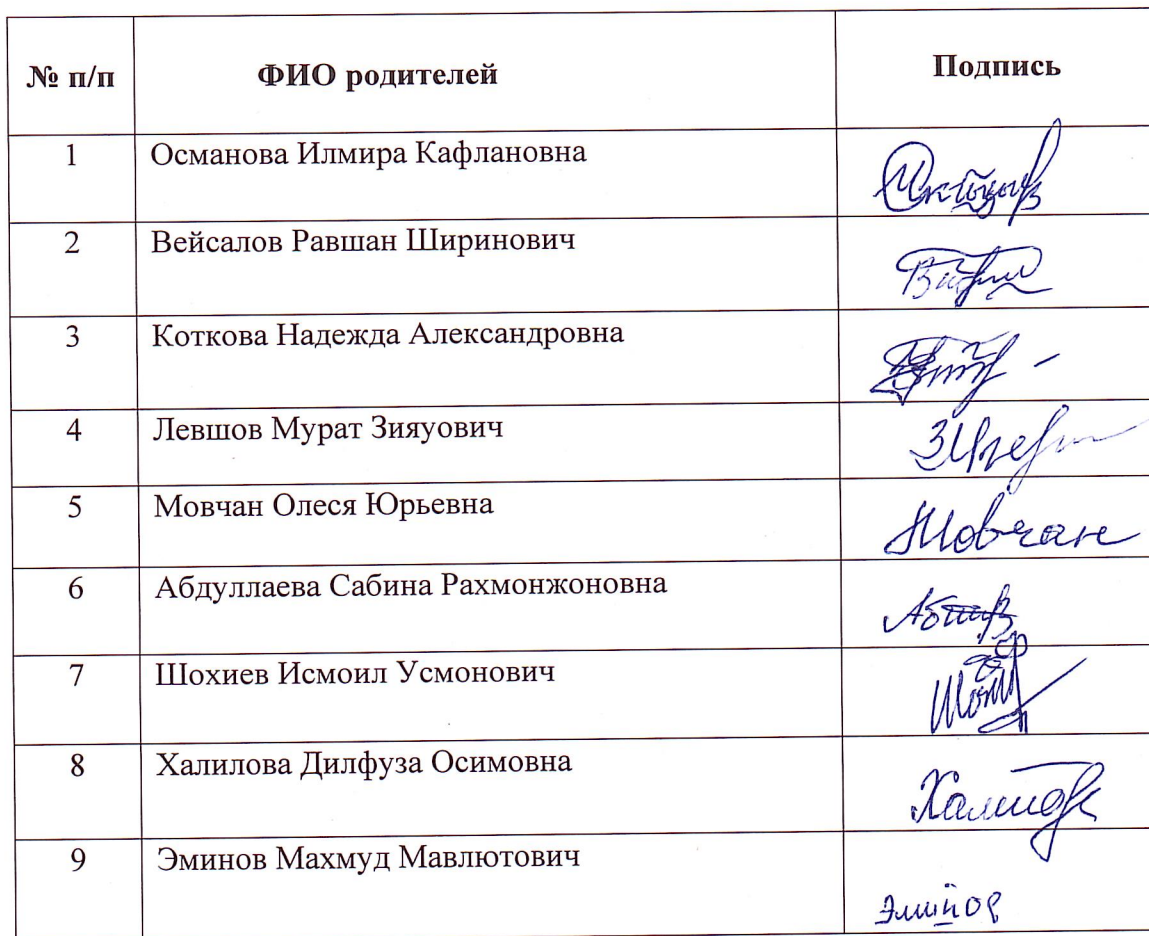 № п/п ФИО родителей Подпись
1 Османова Илмира Кафлановна
2 Вейсалов Равшан Ширинович
3 Коткова Надежда Александровна
4 Левшов Мурат Зияуович
5 Мовчан Олеся Юрьевна Мовчан
6 Абдуллаева Сабина Рахмонжоновна
7 Шохиев Исмоил Усмонович
8 Халилова Дилфуза Осимовна
9 Эминов Махмуд Мавлютович Эминов